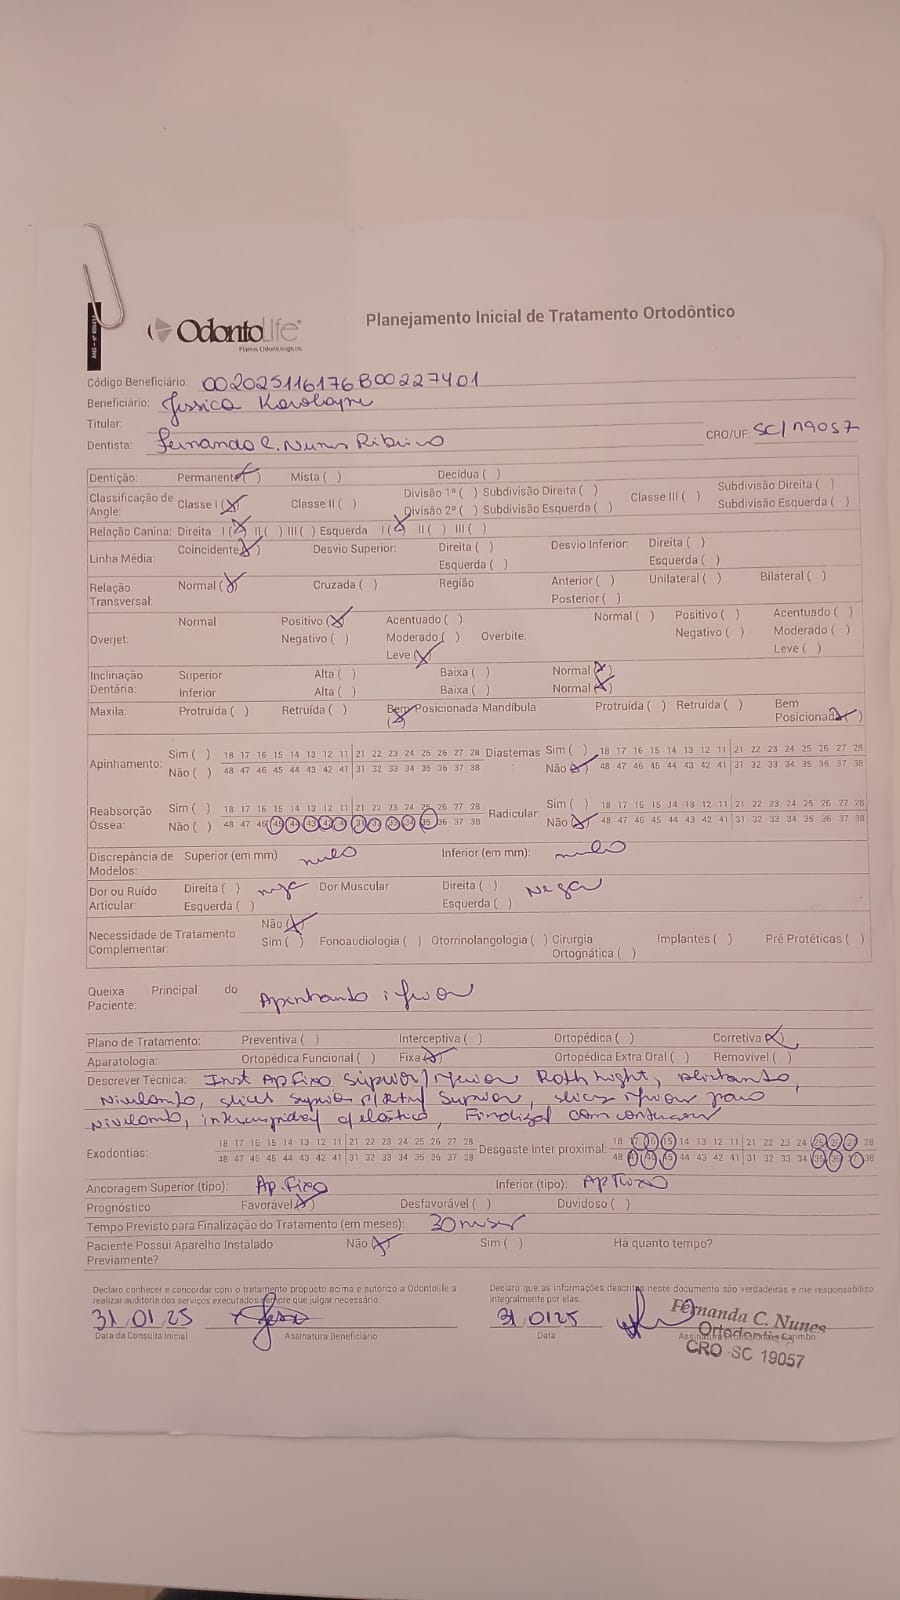 ANS - Nº
OdontoLife
Planos Odontológicos
Planejamento Inicial de Tratamento Ortodôntico
Código Beneficiário: 002025116176800227401
Beneficiário: Jessica Karolayne
Titular:
Dentista: Fernanda C. Nunes Ribeiro CRO/UF: SC/19057
Dentição: Permanente (X) Mista ( ) Decídua ( )
Classificação de Angle: Classe I (X) Classe II ( ) Divisão 1ª ( ) Subdivisão Direita ( ) Divisão 2ª ( ) Subdivisão Esquerda ( ) Classe III ( ) Subdivisão Direita ( ) Subdivisão Esquerda ( )
Relação Canina: Direita I (X) II ( ) III ( ) Esquerda I (X) II ( ) III ( )
Linha Média: Coincidente (X) Desvio Superior: Direita ( ) Esquerda ( ) Desvio Inferior: Direita ( ) Esquerda ( )
Relação Transversal: Normal (X) Cruzada ( ) Região Anterior ( ) Posterior ( ) Unilateral ( ) Bilateral ( )
Overjet: Normal Positivo (X) Negativo ( ) Acentuado ( ) Moderado ( ) Leve (X) Overbite: Normal ( ) Positivo ( ) Negativo ( ) Acentuado ( ) Moderado ( ) Leve ( )
Inclinação Dentária: Superior Alta ( ) Baixa ( ) Normal (X)
Inferior Alta ( ) Baixa ( ) Normal (X)
Maxila: Protruída ( ) Retruída ( ) Bem Posicionada (X) Mandíbula Protruída ( ) Retruída ( ) Bem Posicionada (X)
Apinhamento: Sim ( ) 18 17 16 15 14 13 12 11 21 22 23 24 25 26 27 28 Diastemas Sim ( ) 18 17 16 15 14 13 12 11 21 22 23 24 25 26 27 28
Não ( ) 48 47 46 45 44 43 42 41 31 32 33 34 35 36 37 38 Não (X) 48 47 46 45 44 43 42 41 31 32 33 34 35 36 37 38
Reabsorção Óssea: Sim ( ) 18 17 16 15 14 13 12 11 21 22 23 24 25 26 27 28 Radicular: Sim ( ) 18 17 16 15 14 13 12 11 21 22 23 24 25 26 27 28
Não ( ) 48 47 46 45 44 43 42 41 31 32 33 34 35 36 37 38 Não (X) 48 47 46 45 44 43 42 41 31 32 33 34 35 36 37 38
Discrepância de Modelos: Superior (em mm) nulo Inferior (em mm): nulo
Dor ou Ruído Articular: Direita ( ) Esquerda ( ) nega Dor Muscular Direita ( ) Esquerda ( ) Nega
Necessidade de Tratamento Complementar: Não (X) Sim ( ) Fonoaudiologia ( ) Otorrinolangologia ( ) Cirurgia Ortognática ( ) Implantes ( ) Pré Protéticas ( )
Queixa Principal do Paciente:
Plano de Tratamento: Preventiva ( ) Interceptiva ( ) Ortopédica ( ) Corretiva (X)
Aparatologia: Ortopédica Funcional ( ) Fixa (X) Ortopédica Extra Oral ( ) Removível ( )
Descrever Técnica: Inst Ap Fixo Superior/inferior Roth
Superior, slices inferior para
elástico, Finalizar com contenção
Exodontias: 18 17 16 15 14 13 12 11 21 22 23 24 25 26 27 28 Desgaste Inter proximal: 18 17 16 15 14 13 12 11 21 22 23 24 25 26 27 28
48 47 46 45 44 43 42 41 31 32 33 34 35 36 37 38 48 47 46 45 44 43 42 41 31 32 33 34 35 36 37 38
Ancoragem Superior (tipo): Ap. Fixo Inferior (tipo): Ap Fixo
Prognóstico Favorável (X) Desfavorável ( ) Duvidoso ( )
Tempo Previsto para Finalização do Tratamento (em meses): 30 meses
Paciente Possui Aparelho Instalado Previamente? Não (X) Sim ( ) Há quanto tempo?
Declaro conhecer e concordar com o tratamento proposto acima e autorizo a Odontolife a realizar auditoria dos serviços executados sempre que julgar necessário.
Declaro que as informações descritas neste documento são verdadeiras e me responsabilizo integralmente por elas.
31 01 25 31 01 25
Data da Consulta Inicial Assinatura Beneficiário Data Assinatura Carimbo
Fernanda C. Nunes
Ortodontia
CRO-SC 19057